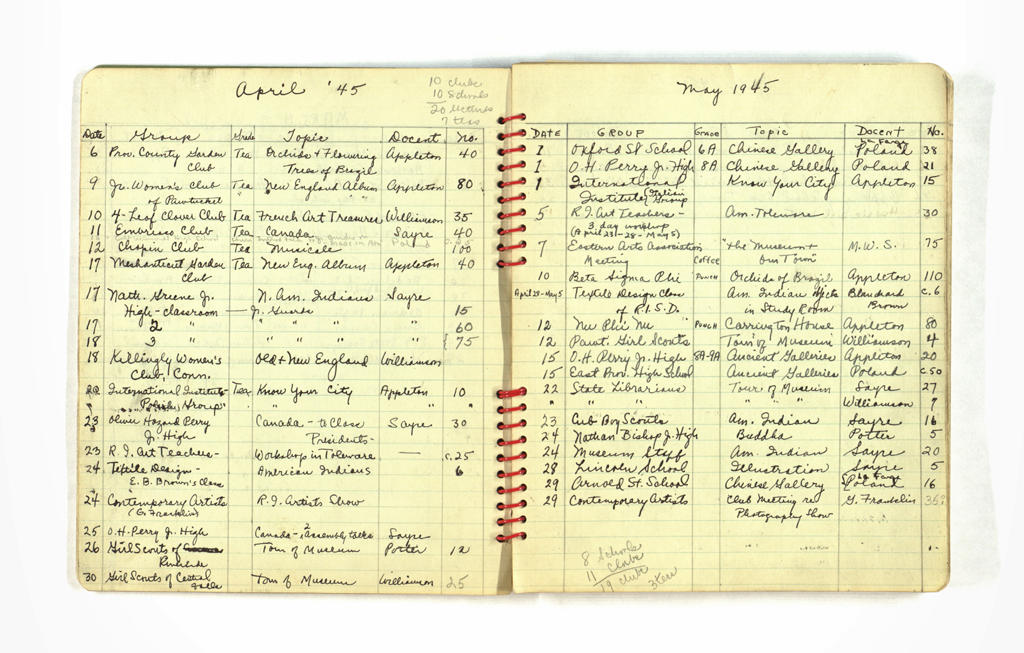 April '45
10 clubs
10 Schools
20 lectures
7 teas
Date Group Grade Topic Docent No.
6 Prov. County Garden Tea Orchids & Flowering Appleton 40
Club Trees of Brazil
9 Jr. Women's Club Tea New England Album Appleton 80
of Pawtucket
10 4-Leaf Clover Club Tea French Art Treasures Williamson 35
11 Embrisso Club Tea Canada Sayre 40
12 Chopin Club Tea Musicale 100
17 Meshanticut Garden Tea New Eng. Album Appleton 40
Club
17 Nath. Greene Jr. N. Am. Indians Sayre
High-classroom — Jr. Guards 15
17 2 " " " " " 60
18 3 " " " " " { 75
18 Killingly Women's Old & New England Williamson
Club, Conn.
20 International Institute- Tea Know Your City Appleton 10
" "Polish Group" " " " "
23 Oliver Hazard Perry Canada - to Class Sayre 30
Jr. High Presidents -
23 R.I. Art Teachers- Workshop in Toleware — c.25
24 Textile Design - American Indians 6
E.B. Brown's Class
24 Contemporary Artists R.I. Artists Show
(G. Franklin)
25 O.H. Perry Jr. High Canada - 2 assembly talks Sayre
26 Girl Scouts of Tour of Museum Potter 12
30 Girl Scouts of Central Tour of Museum Williamson 25
Falls
May 1945
DATE GROUP Grade Topic Docent No.
1 Oxford St School 6A Chinese Gallery Poland 38
1 O.H. Perry Jr. High 8A Chinese Gallery Poland 21
1 International Know Your City Appleton 15
Institute (Italian Group
5 R.I. Art Teachers - Am. Toleware 30
3 day workshop
(April 23 - 28 - May 5)
7 Eastern Arts Association "The Museum & M.W.S. 75
Meeting Coffee Our Town"
10 Beta Sigma Phi Punch Orchids of Brazil Appleton 110
April 28-May 5 Textile Design Class Am. Indian Objects Blanchard c.6
of R.I.S.D. in Study Room Brown
12 Nu Phi Nu Punch Carrington House Appleton 80
12 Pawt. Girl Scouts Tour of Museum Williamson 4
15 O.H. Perry Jr. High 8A-9A Ancient Galleries Appleton 20
15 East Prov. High School Ancient Galleries Poland c.50
22 State Librarians Tour of Museum Sayre 27
" " " " " " Williamson 7
23 Cub Boy Scouts Am. Indian Sayre 16
24 Nathan Bishop Jr. High Buddha Potter 5
24 Museum Staff Am. Indian Sayre 20
28 Lincoln School Illustration Sayre 5
29 Arnold St. School Chinese Gallery Poland 16
29 Contemporary Artists Club Meeting re G. Franklin 35?
Photography Show
8 Schools
11 clubs
19 clubs
3 teas